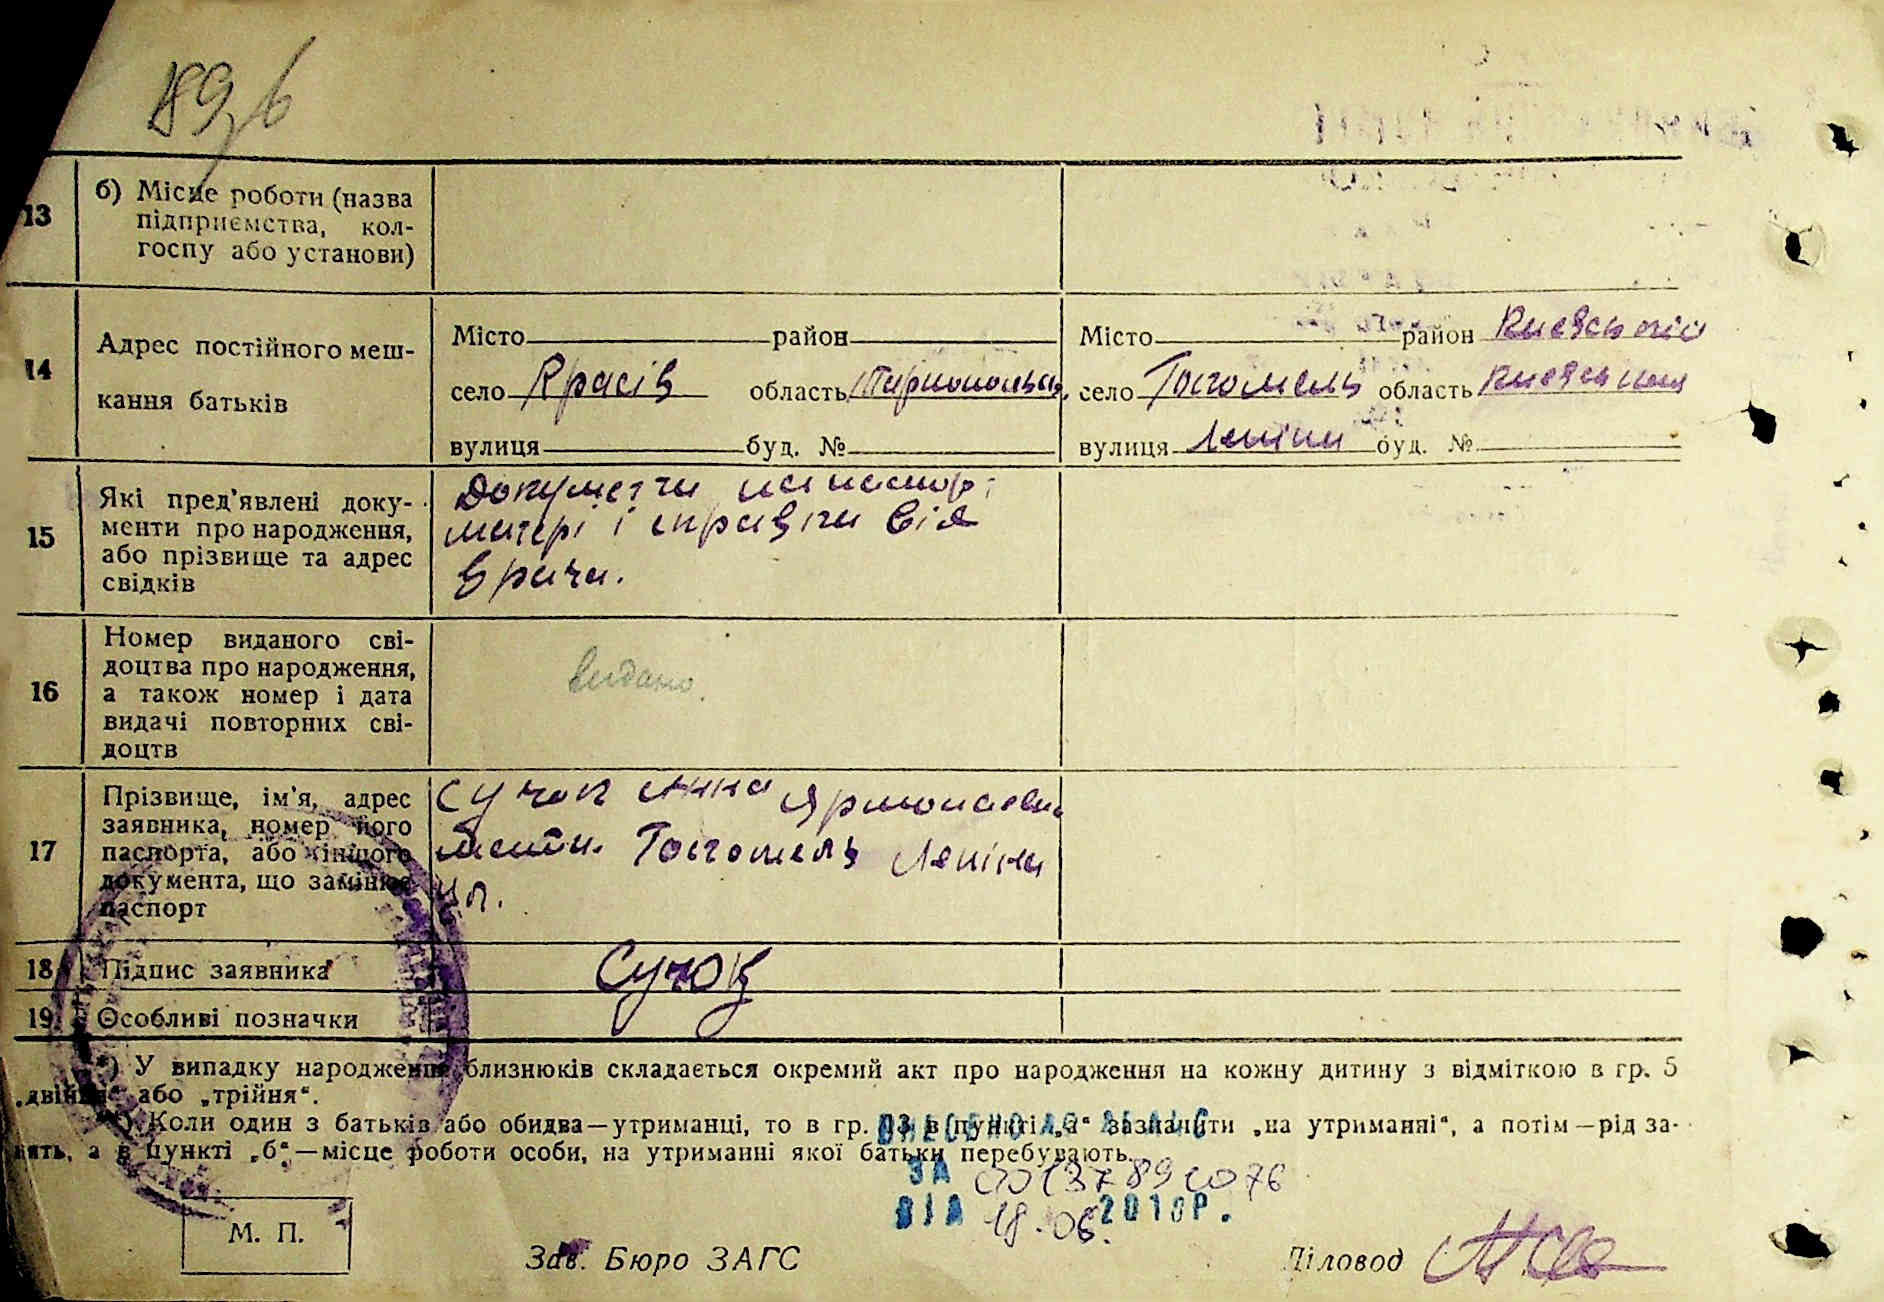 13
б) Місце роботи (назва
підприємства, кол-
госпу або установи)
14
Адрес постійного меш-
кання батьків
Місто район
село Красів область Тернопольська
вулиця буд. №
Місто район Київський
село Гостомель область Київська
вулиця Леніна буд. №
15
Які пред'явлені доку-
менти про народження,
або прізвище та адрес
свідків
Документи паспорт
матері і справки від
врача.
16
Номер виданого сві-
доцтва про народження,
а також номер і дата
видачі повторних сві-
доцтв
видано.
17
Прізвище, ім'я, адрес
заявника, номер його
паспорта, або іншого
документа, що замінює
паспорт
Сучок Анна
Гостомель Леніна
18
Підпис заявника
Сучок
19
Особливі позначки
*) У випадку народження близнюків складається окремий акт про народження на кожну дитину з відміткою в гр. 5
„двійня“ або „трійня“.
**) Коли один з батьків або обидва—утриманці, то в гр. 13 в пункті „а“ зазначити „на утриманні“, а потім—рід за-
нять, а в пункті „б“—місце роботи особи, на утриманні якої батьки перебувають.
ВНЕСЕНО ДО ДРАЦС
ЗА 00137891076
ВІД 18.06. 2018Р.
М. П.
Зав. Бюро ЗАГС
Діловод